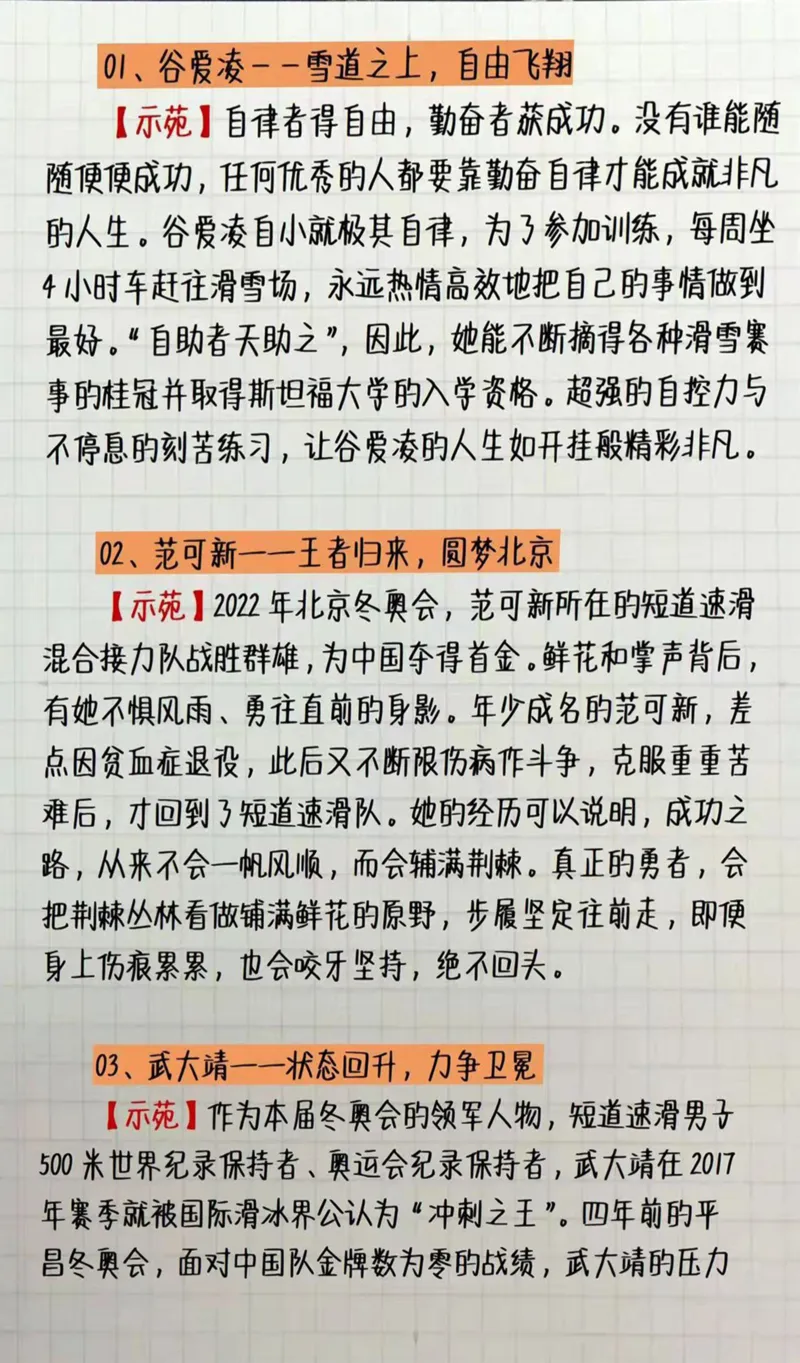 01、谷爱凌--雪道之上，自由飞翔
【示苑】自律者得自由，勤奋者获成功。没有谁能随
随便便成功，任何优秀的人都要靠勤奋自律才能成就非凡
的人生。谷爱凌自小就极其自律，为了参加训练，每周坐
4小时车赶往滑雪场，永远热情高效地把自己的事情做到
最好。“自助者天助之”，因此，她能不断摘得各种滑雪赛
事的桂冠并取得斯坦福大学的入学资格。超强的自控力与
不停息的刻苦练习，让谷爱凌的人生如开挂般精彩非凡。
02、范可新——王者归来，圆梦北京
【示苑】2022年北京冬奥会，范可新所在的短道速滑
混合接力队战胜群雄，为中国夺得首金。鲜花和掌声背后，
有她不惧风雨、勇往直前的身影。年少成名的范可新，差
点因贫血症退役，此后又不断限伤病作斗争，克服重重苦
难后，才回到了短道速滑队。她的经历可以说明，成功之
路，从来不会一帆风顺，而会辅满荆棘。真正的勇者，会
把荆棘丛林看做铺满鲜花的原野，步履坚定往前走，即便
身上伤痕累累，也会咬牙坚持，绝不回头。
03、武大靖——状态回升，力争卫冕
【示苑】作为本届冬奥会的领军人物，短道速滑男子
500米世界纪录保持者、奥运会纪录保持者，武大靖在2017
年赛季就被国际滑冰界公认为“冲刺之王”。四年前的平
昌冬奥会，面对中国队金牌数为零的战绩，武大靖的压力